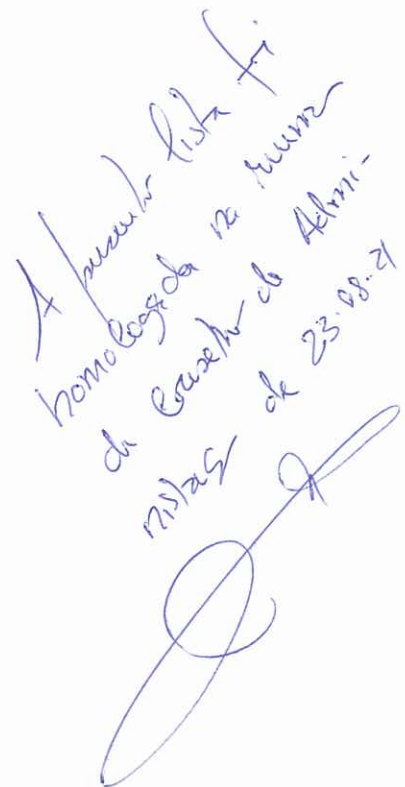 A presente lista foi
homologada na reunião
do Conselho de Admi-
nistração de 23.08.21